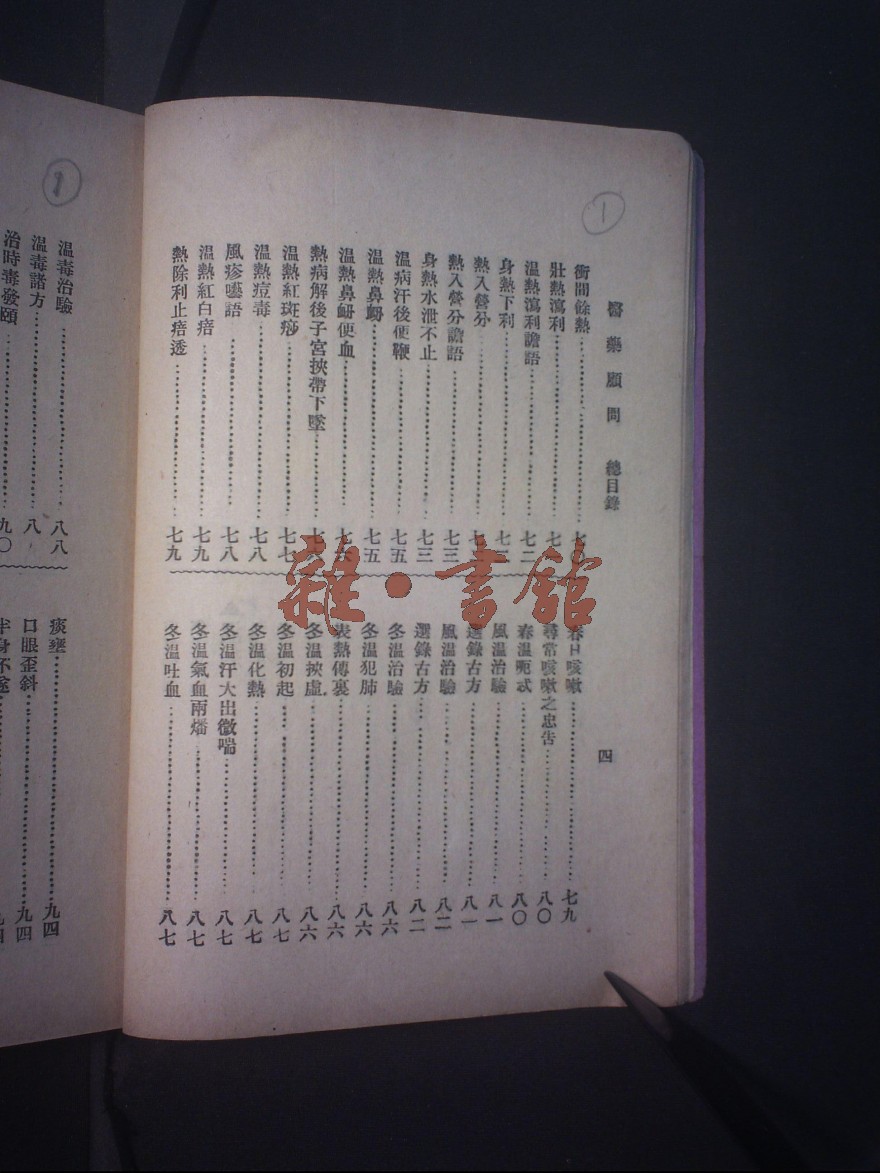 醫藥顧問　總目錄
四
衝間餘熱……七〇
壯熱瀉利……七〇
溫熱瀉利譫語……七二
身熱下利……七三
熱入營分……七三
熱入營分譫語……七三
身熱水泄不止……七三
溫病汗後便鞭……七五
溫熱鼻衂……七五
溫熱鼻衂便血……七六
熱病解後子宮挾帶下墜……七六
溫熱紅斑痧……七七
溫熱痘毒……七八
風疹囈語……七八
溫熱紅白㾦……七九
熱除利止㾦透……七九
春日咳嗽……七九
尋常咳嗽之忠告……八〇
春溫呃忒……八〇
風溫治驗……八一
選錄古方……八一
風溫治驗……八二
選錄古方……八二
冬溫治驗……八六
冬溫犯肺……八六
表熱傳裏……八六
冬溫挾虛……八六
冬溫初起……八七
冬溫化熱……八七
冬溫汗大出微喘……八七
冬溫氣血兩燔……八七
冬溫吐血……八七
雜·書館
1
溫毒治驗……八八
溫毒諸方……八
治時毒發頤……九〇
痰壅……九四
口眼歪斜……九四
半身不遂